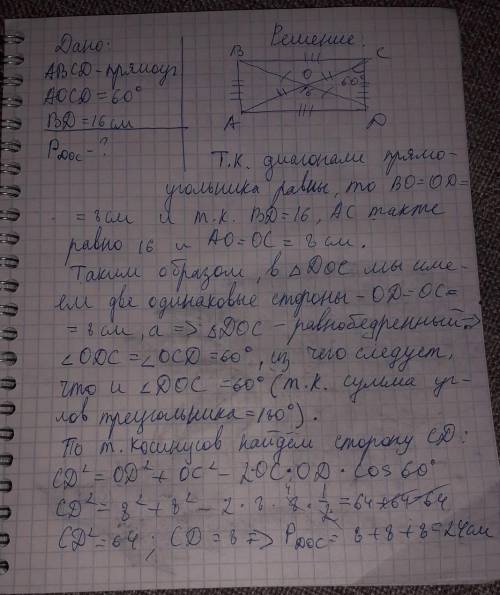 Дано:
ABCD - прямоуг
∠OCD = 60°
BD = 16 см
P_DOC - ?
Решение:
B
C
O
60°
A
D
Т.к. диагонали прямо-
угольника равны, то BO=OD=
= 8 см и т.к. BD=16, AC также
равно 16 и AO=OC = 8 см.
Таким образом, в △DOC мы име-
ем две одинаковые стороны - OD=OC=
= 8 см, а => △DOC - равнобедренный =>
∠ODC = ∠OCD = 60°, из чего следует,
что и ∠DOC = 60° (т.к. сумма уг-
лов треугольника = 180°).
По т. косинусов найдём сторону CD:
CD² = OD² + OC² - 2·OC·OD · cos 60°
CD² = 8² + 8² - 2 · 8 · 8 · 1/2 = 64+64-64
CD² = 64 ; CD = 8 => P_DOC = 8 + 8 + 8 = 24 см